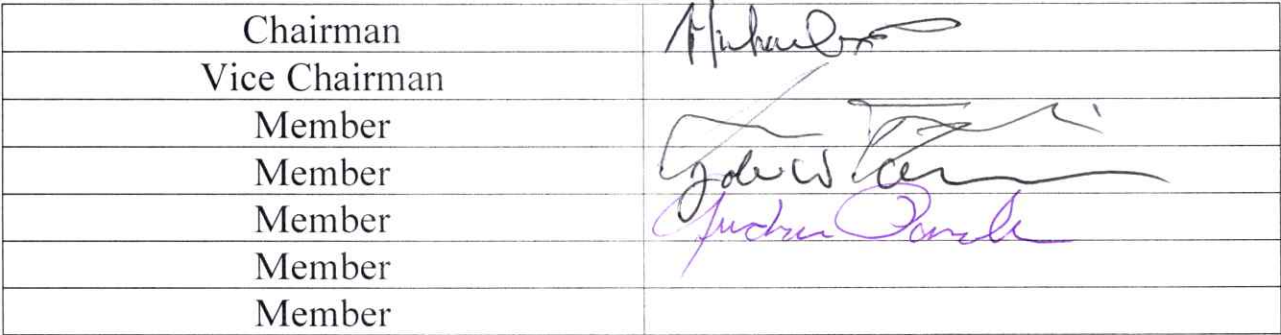 Chairman Michael
Vice Chairman
Member
Member John W
Member
Member
Member